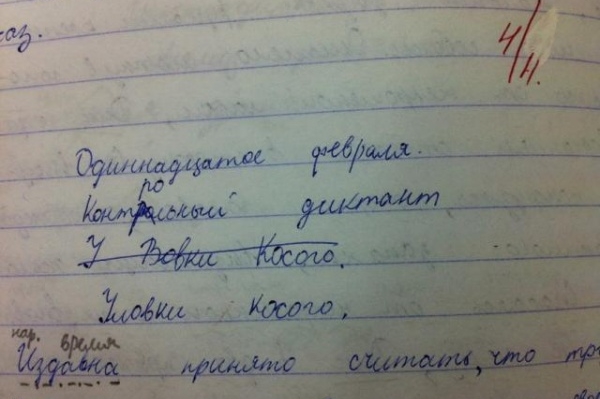 каз.
4/4.
Одиннадцатое февраля.
Контрольный диктант
У Вовки Косого.
Уловки косого.
нар. время
Издавна принято считать, что тр